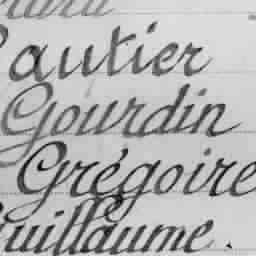 Gautier
Gourdin
Grégoire
Guillaume.